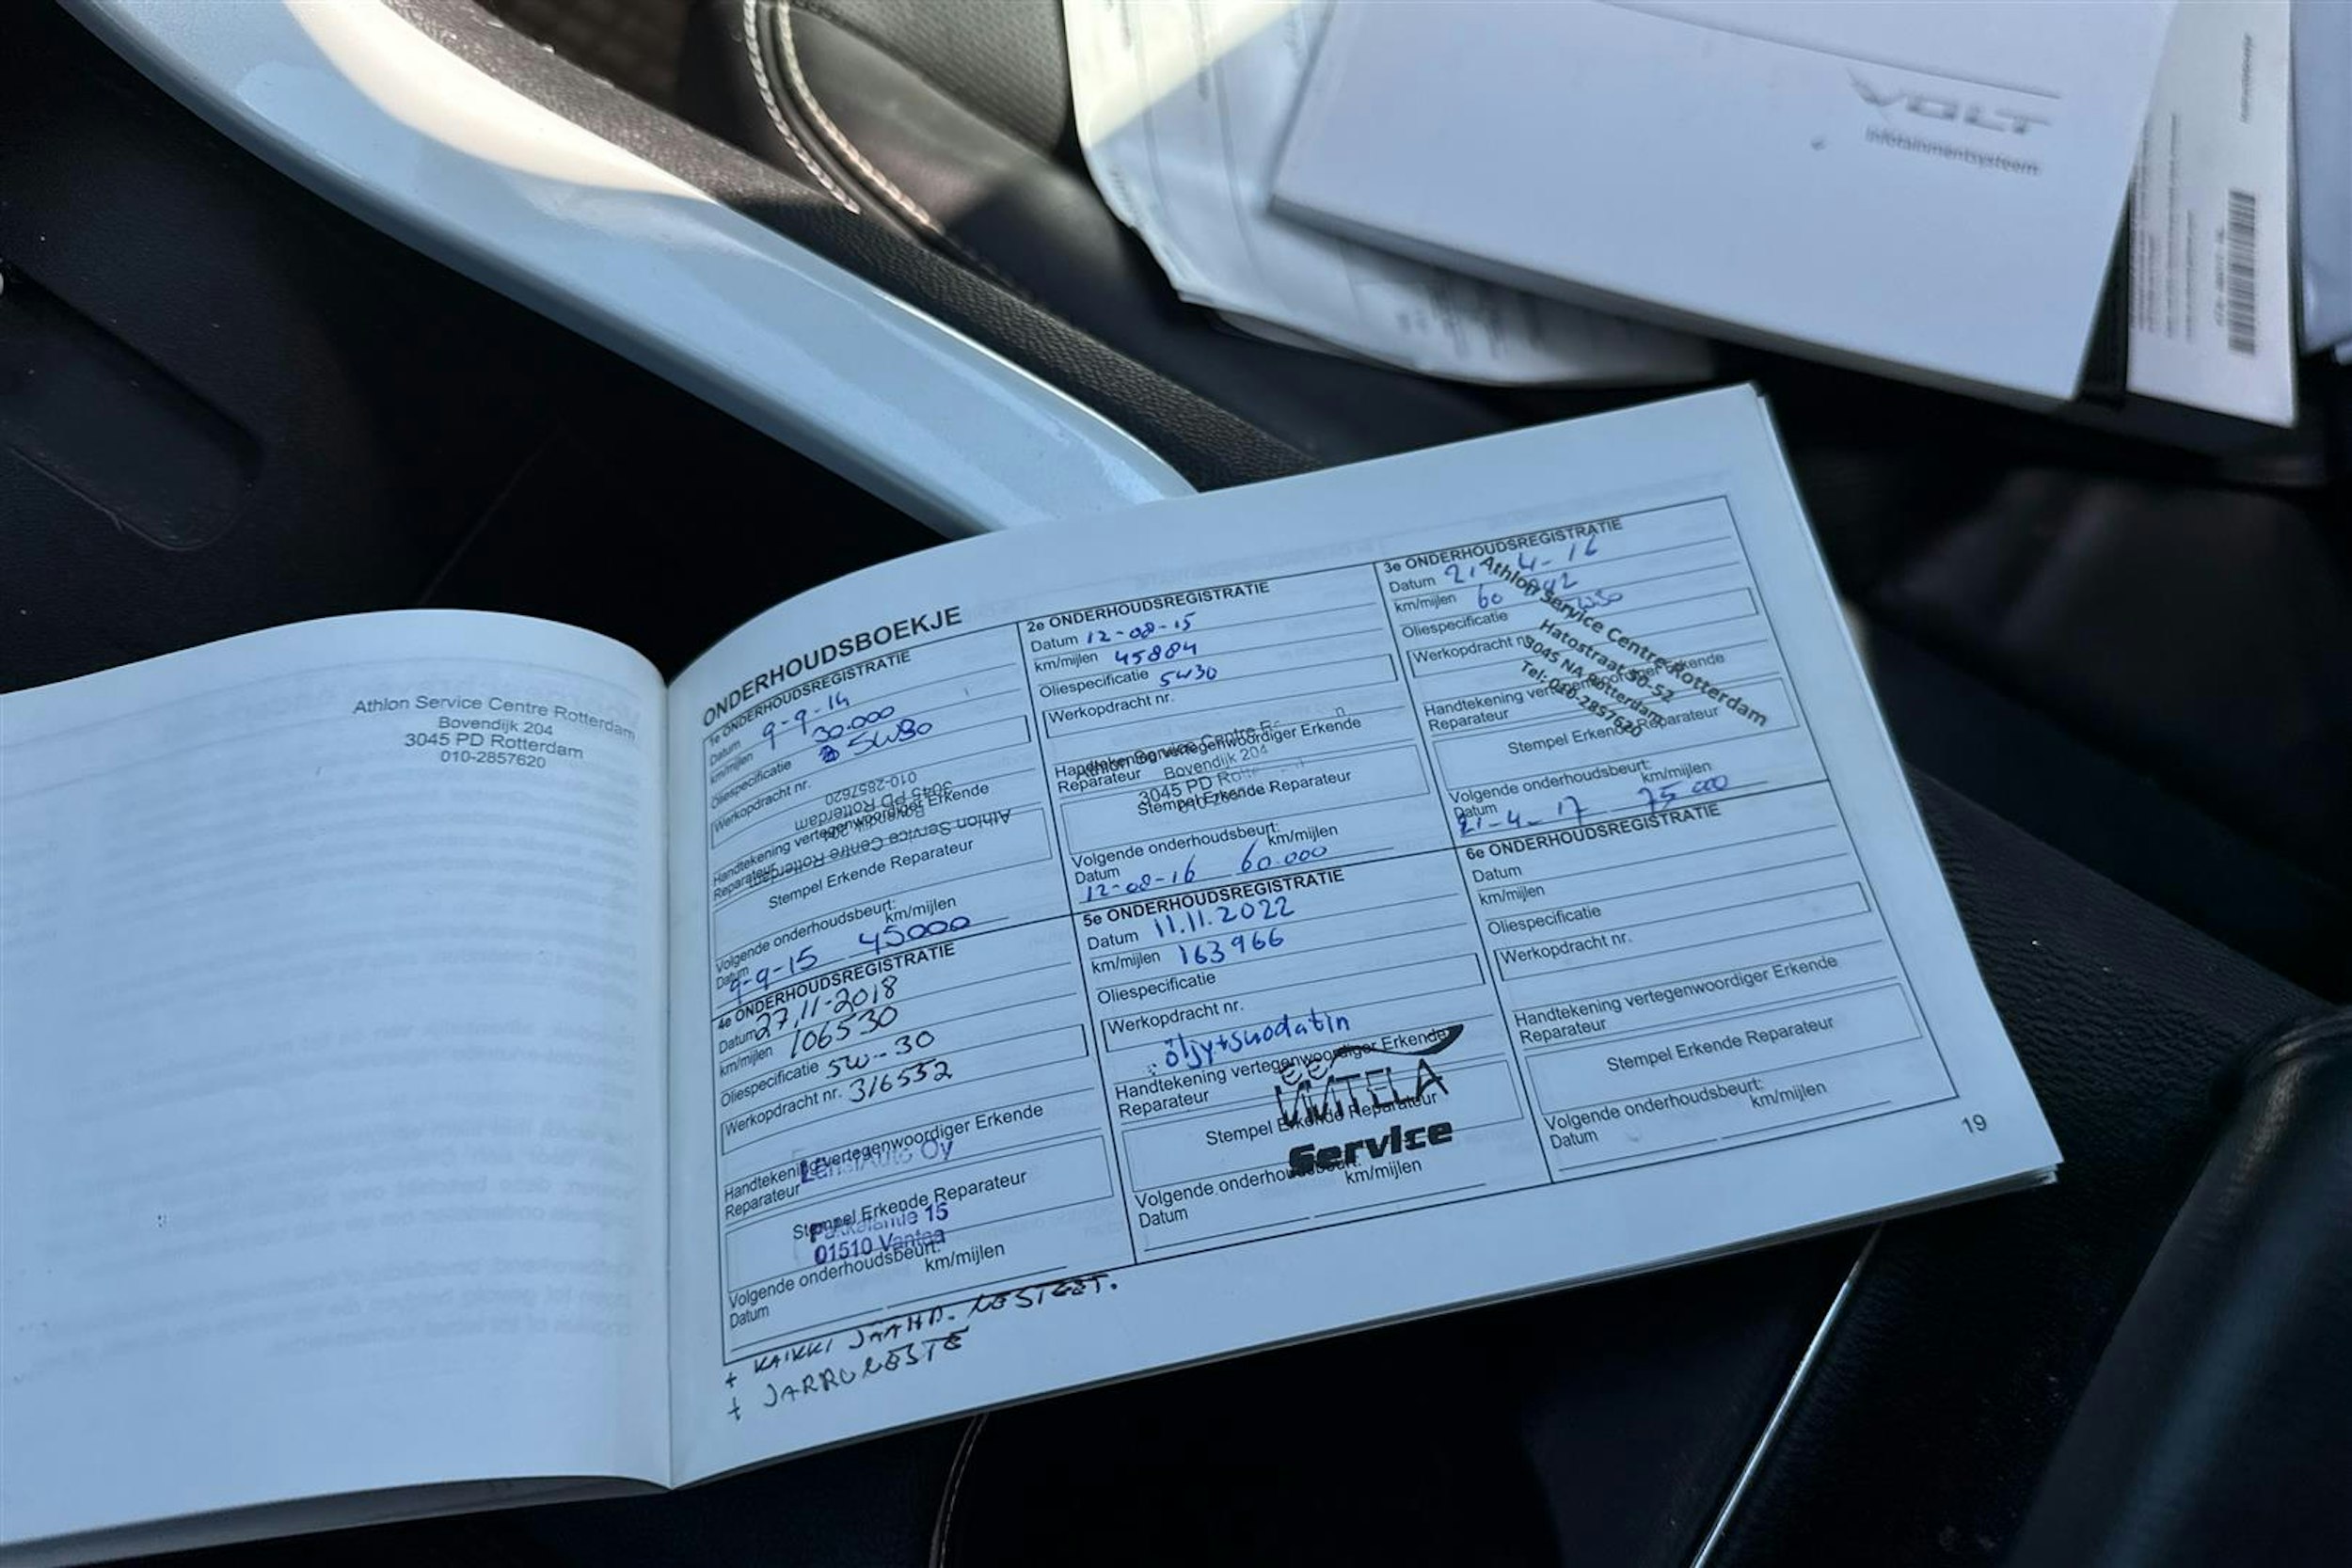 VOLT
Infotainmentsysteem
Athlon Service Centre Rotterdam
Bovendijk 204
3045 PD Rotterdam
010-2857620
ONDERHOUDSBOEKJE
1e ONDERHOUDSREGISTRATIE
Datum 9-9-14
km/mijlen 30.000
Oliespecificatie 5W30
Werkopdracht nr.
010-2857620
3045 PD Rotterdam
Bovendijk 204
Athlon Service Centre Rotterdam
Handtekening vertegenwoordiger Erkende
Reparateur
Stempel Erkende Reparateur
Volgende onderhoudsbeurt:
Datum km/mijlen
9-9-15 45000
2e ONDERHOUDSREGISTRATIE
Datum 12-08-15
km/mijlen 45884
Oliespecificatie 5W30
Werkopdracht nr.
Service Centre
Handtekening vertegenwoordiger Erkende
Reparateur
Bovendijk 204
3045 PD
Stempel Erkende Reparateur
Volgende onderhoudsbeurt:
Datum km/mijlen
12-08-16 60.000
3e ONDERHOUDSREGISTRATIE
Datum 21-4-16
km/mijlen 60
Oliespecificatie
Werkopdracht nr.
Athlon Service Centre Rotterdam
Hatostraat 50-52
3045 NA Rotterdam
Tel: 010-2857620
Handtekening vertegenwoordiger Erkende
Reparateur
Stempel Erkende Reparateur
Volgende onderhoudsbeurt:
Datum km/mijlen
21-4-17 75000
4e ONDERHOUDSREGISTRATIE
Datum 27.11-2018
km/mijlen 106530
Oliespecificatie 5W-30
Werkopdracht nr. 316552
Handtekening vertegenwoordiger Erkende
Reparateur
LänsiAuto Oy
Stempel Erkende Reparateur
15
01510 Vantaa
Volgende onderhoudsbeurt:
Datum km/mijlen
+ KAIKKI JÄÄHD. NESTEET.
+ JARRUNESTE
5e ONDERHOUDSREGISTRATIE
Datum 11.11.2022
km/mijlen 163966
Oliespecificatie
Werkopdracht nr.
öljy+suodatin
Handtekening vertegenwoordiger Erkende
Reparateur
Stempel Erkende Reparateur
Service
Volgende onderhoudsbeurt:
Datum km/mijlen
6e ONDERHOUDSREGISTRATIE
Datum
km/mijlen
Oliespecificatie
Werkopdracht nr.
Handtekening vertegenwoordiger Erkende
Reparateur
Stempel Erkende Reparateur
Volgende onderhoudsbeurt:
Datum km/mijlen
19